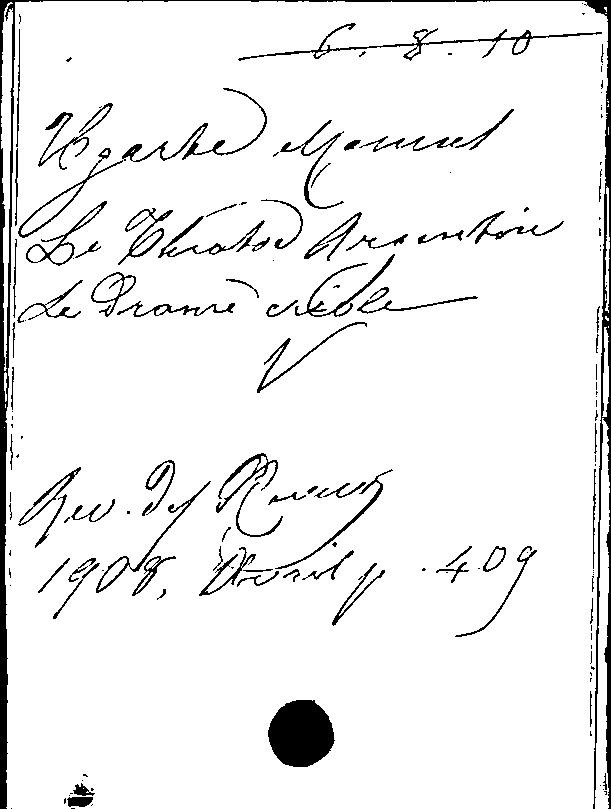 6. 8. 10
Ugarte Manuel
Le Théatre Argentin
Le Drame créole
V
Rev. des Revues
1908, Avril p. 409